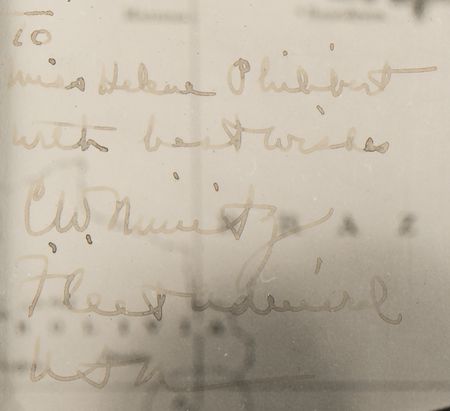 To
Miss Helene Philibert
with best wishes
C W Nimitz
Fleet Admiral
USN